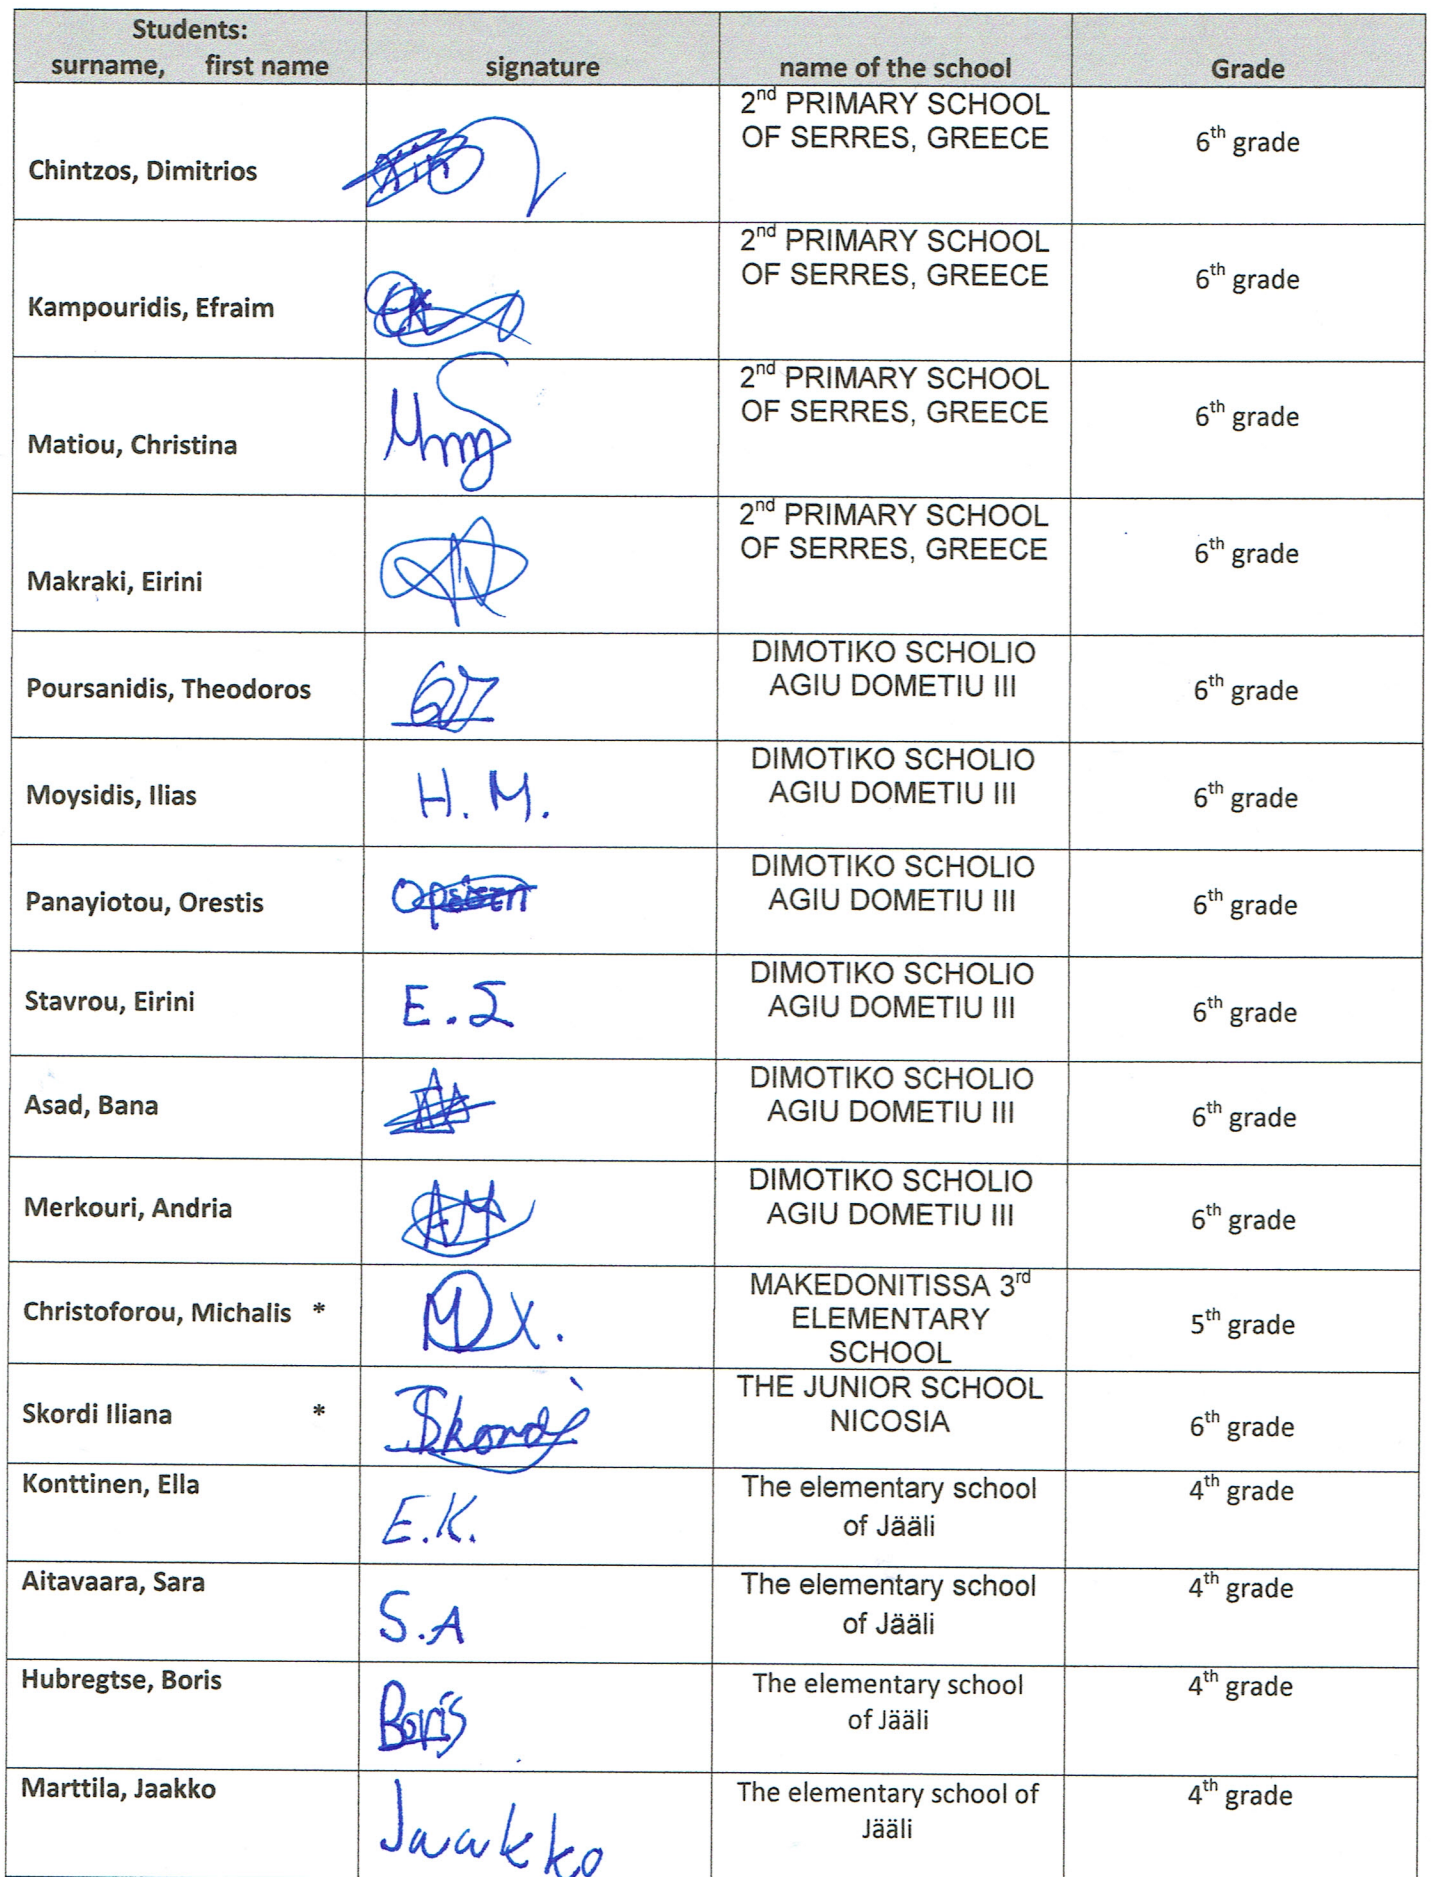 Students:
surname, first name signature name of the school Grade
Chintzos, Dimitrios 2nd PRIMARY SCHOOL
OF SERRES, GREECE 6th grade
Kampouridis, Efraim 2nd PRIMARY SCHOOL
OF SERRES, GREECE 6th grade
Matiou, Christina 2nd PRIMARY SCHOOL
OF SERRES, GREECE 6th grade
Makraki, Eirini 2nd PRIMARY SCHOOL
OF SERRES, GREECE 6th grade
Poursanidis, Theodoros DIMOTIKO SCHOLIO
AGIU DOMETIU III 6th grade
Moysidis, Ilias H. M. DIMOTIKO SCHOLIO
AGIU DOMETIU III 6th grade
Panayiotou, Orestis DIMOTIKO SCHOLIO
AGIU DOMETIU III 6th grade
Stavrou, Eirini E. Σ DIMOTIKO SCHOLIO
AGIU DOMETIU III 6th grade
Asad, Bana DIMOTIKO SCHOLIO
AGIU DOMETIU III 6th grade
Merkouri, Andria AM DIMOTIKO SCHOLIO
AGIU DOMETIU III 6th grade
Christoforou, Michalis * M X. MAKEDONITISSA 3rd
ELEMENTARY
SCHOOL 5th grade
Skordi Iliana * Skordi THE JUNIOR SCHOOL
NICOSIA 6th grade
Konttinen, Ella E.K. The elementary school
of Jääli 4th grade
Aitavaara, Sara S.A The elementary school
of Jääli 4th grade
Hubregtse, Boris Boris The elementary school
of Jääli 4th grade
Marttila, Jaakko Jaakko The elementary school of
Jääli 4th grade